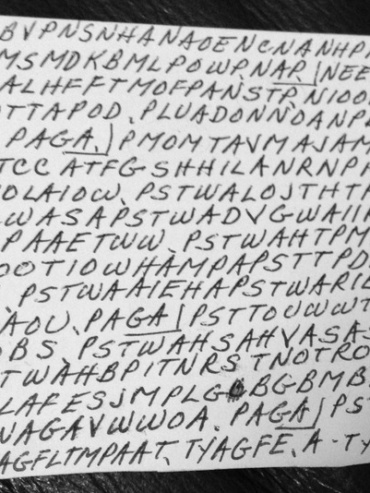 BVPNSNHANAOENCNANHP
MSMDKBMLPOWP, NAP, | NEE
ALHFFTMOFPANSTP, NIOO
OTTAPOD, PLUADONNOANPL
PAGA, | PMOMTAVMAJAM
TCC ATFG SHHILANRNPA
OLAIOW, PSTWALOJTHTA
LWASAPSTWADVGWAIIA
PAAETWW, PSTWAHTPM
OOTIOWHAMPAPSTTPD
PSTWAAIEHAPSTWARIL
AOU, PAGA | PSTTOUWWT
OBS, PSTWAHSAHVASAS
TWAHBPITNRSTNOTRO
LAFESJMPLGBGBMB
NAGAVWWOA, PAGA | PS
AGFLTMPAAT, TYAGFE, A-TY